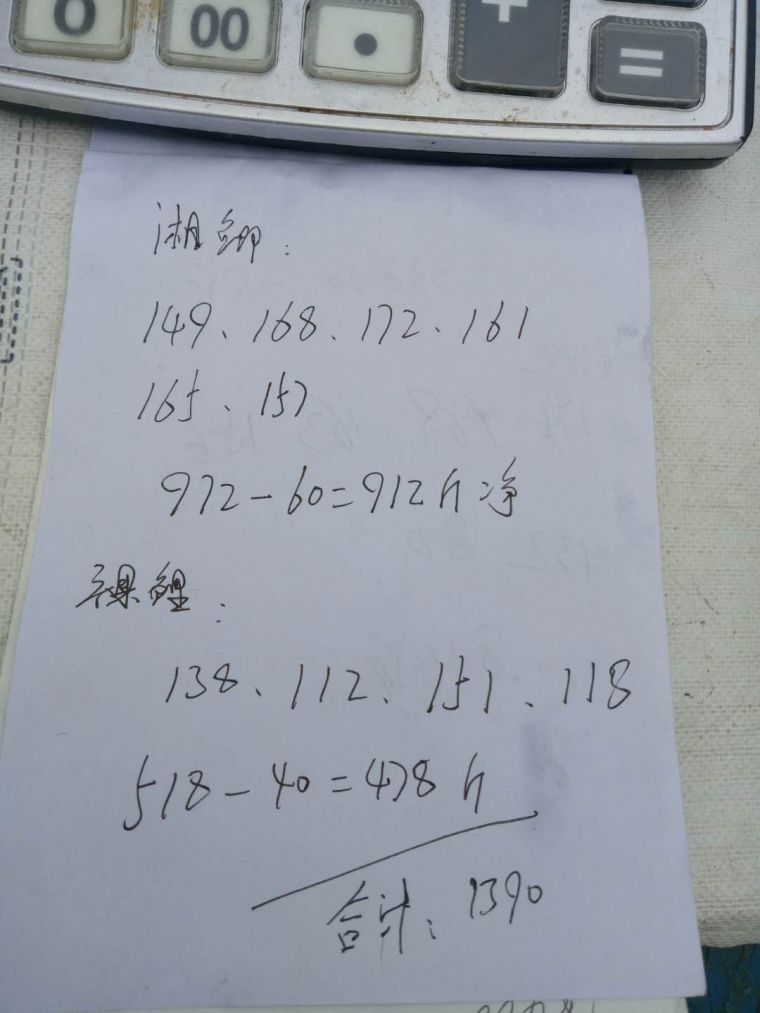 0 00 • + =
湘鲫:
149、168、172、161
165、157
972-60=912斤净
裸鲤:
138、112、151、118
518-40=478斤
合计:1390